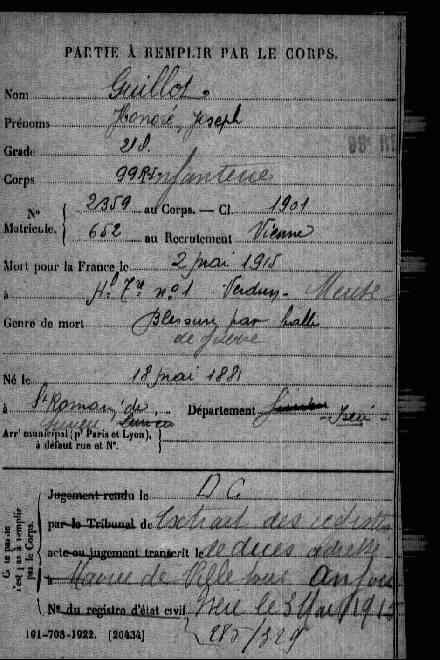 PARTIE À REMPLIR PAR LE CORPS.
Nom Guillot
Prénoms Honoré, Joseph
Grade 2 cl.
Corps 99 RI Infanterie
N° Matricule. 2359 au Corps. — Cl. 1901
652 au Recrutement Vienne
Mort pour la France le 2 mai 1915
à Hal Tre n° 1 Verdun - Meuse
Genre de mort Blessure par balle
de guerre
Né le 18 mai 1881
à St Romain de Département Isère
Arrt municipal (pr Paris et Lyon),
à défaut rue et N°.
Ce te partie n'est pas à remplir par le Corps.
Jugement rendu le D C
par le Tribunal de Extrait des registres
acte ou jugement transcrit le de décès adressé
à Mairie de Ville sous Anjou
N° du registre d'état civil Isère le 3 Mai 1915
285/329
161-708-1922. [26434]